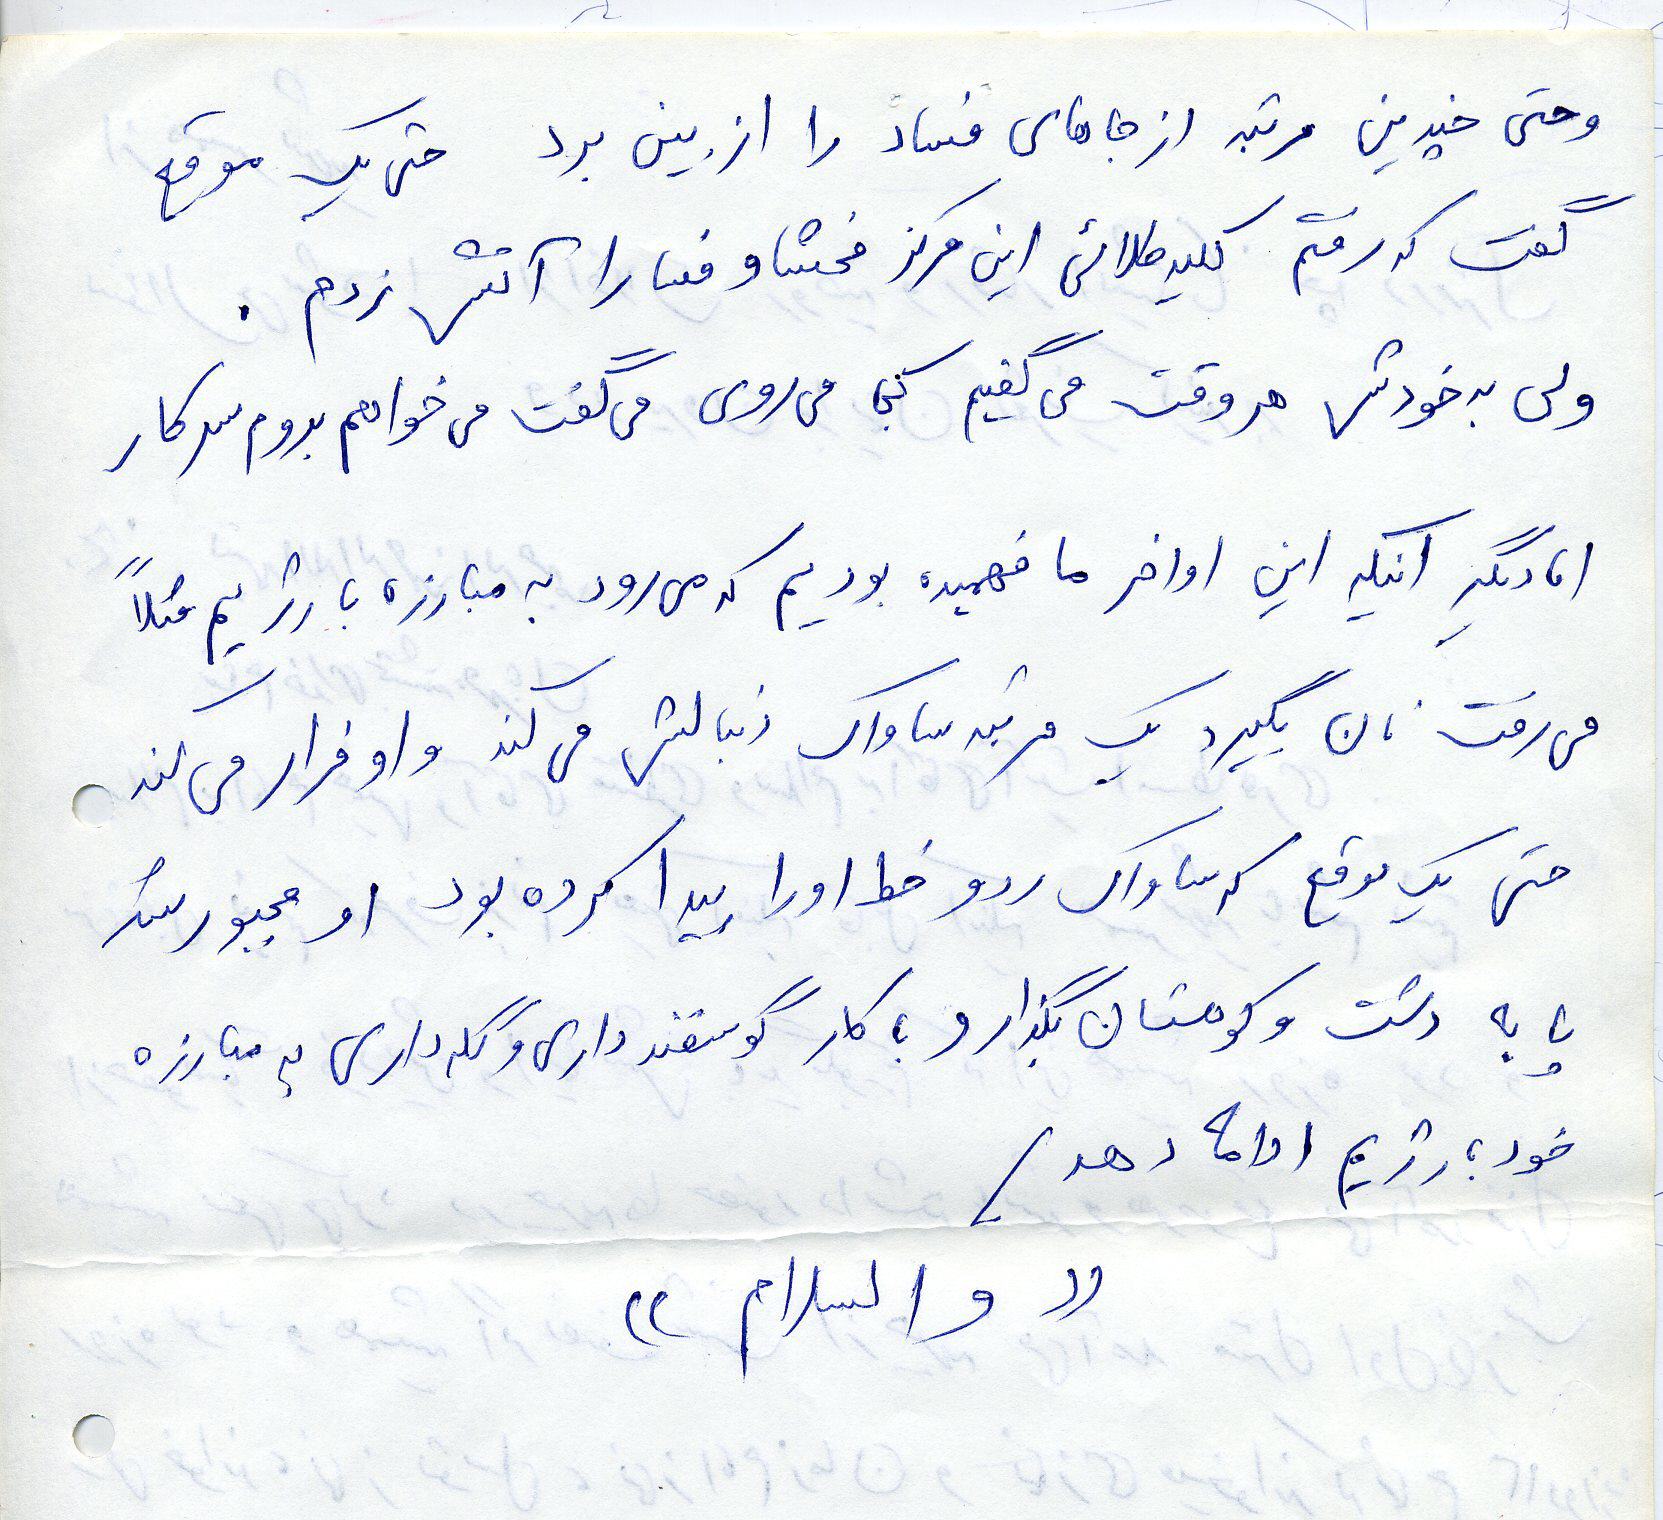 وحتی چندین مرتبه از جاهای فساد را از بین برد حتی یک موقع
گفت که رفتم کلید طلائی این مرکز فحشا و فسا را آتش زدم .
ولی به خودش هر وقت می‌گفیم کجا می‌روی می‌گفت می‌خواهم بروم سر کار
اما دیگر اینکه این اواخر ما فهمیده بودیم که می‌رود به مبارزه با رژیم مثلاً
می‌رفت نان بگیرد یک مرتبه ساواک دنبالش می‌کند و او فرار می‌کند
حتی یک موقع که ساواک رد و خط او را پیدا کرده بود او مجبور شد
پا به دشت و کوهستان بگذارد و با کار گوسفند داری و گله داری به مبارزه
خود با رژیم ادامه دهد /
« والسلام »